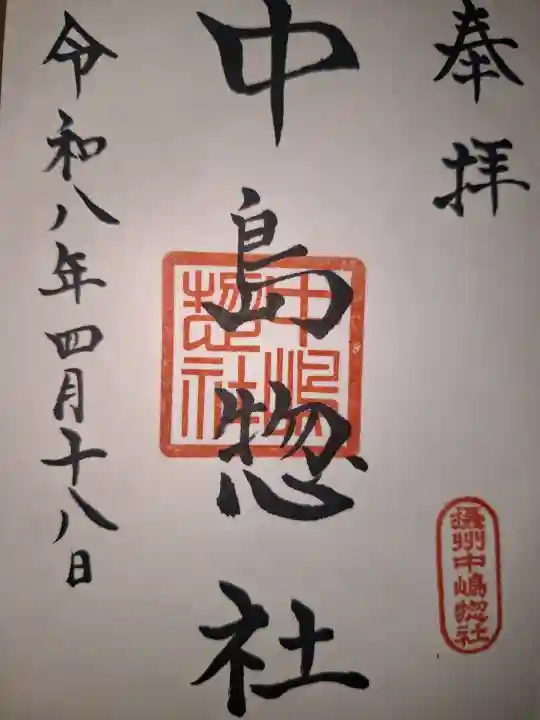 奉拝
中島惣社
令和八年四月十八日
中嶋惣社
摂州中嶋惣社